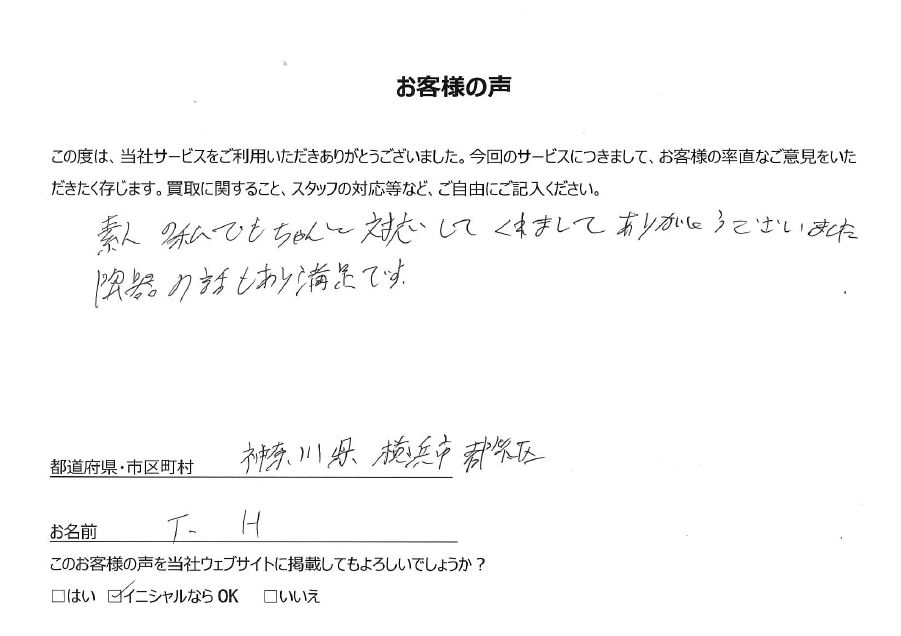 お客様の声
この度は、当社サービスをご利用いただきありがとうございました。今回のサービスにつきまして、お客様の率直なご意見をいた
だきたく存じます。買取に関すること、スタッフの対応等など、ご自由にご記入ください。
素人の私でもちゃんと対応してくれましてありがとうございました
陶器の話もあり満足です.
都道府県・市区町村 神奈川県 横浜市 都筑区
お名前 T- H
このお客様の声を当社ウェブサイトに掲載してもよろしいでしょうか？
□はい ☑イニシャルならOK □いいえ